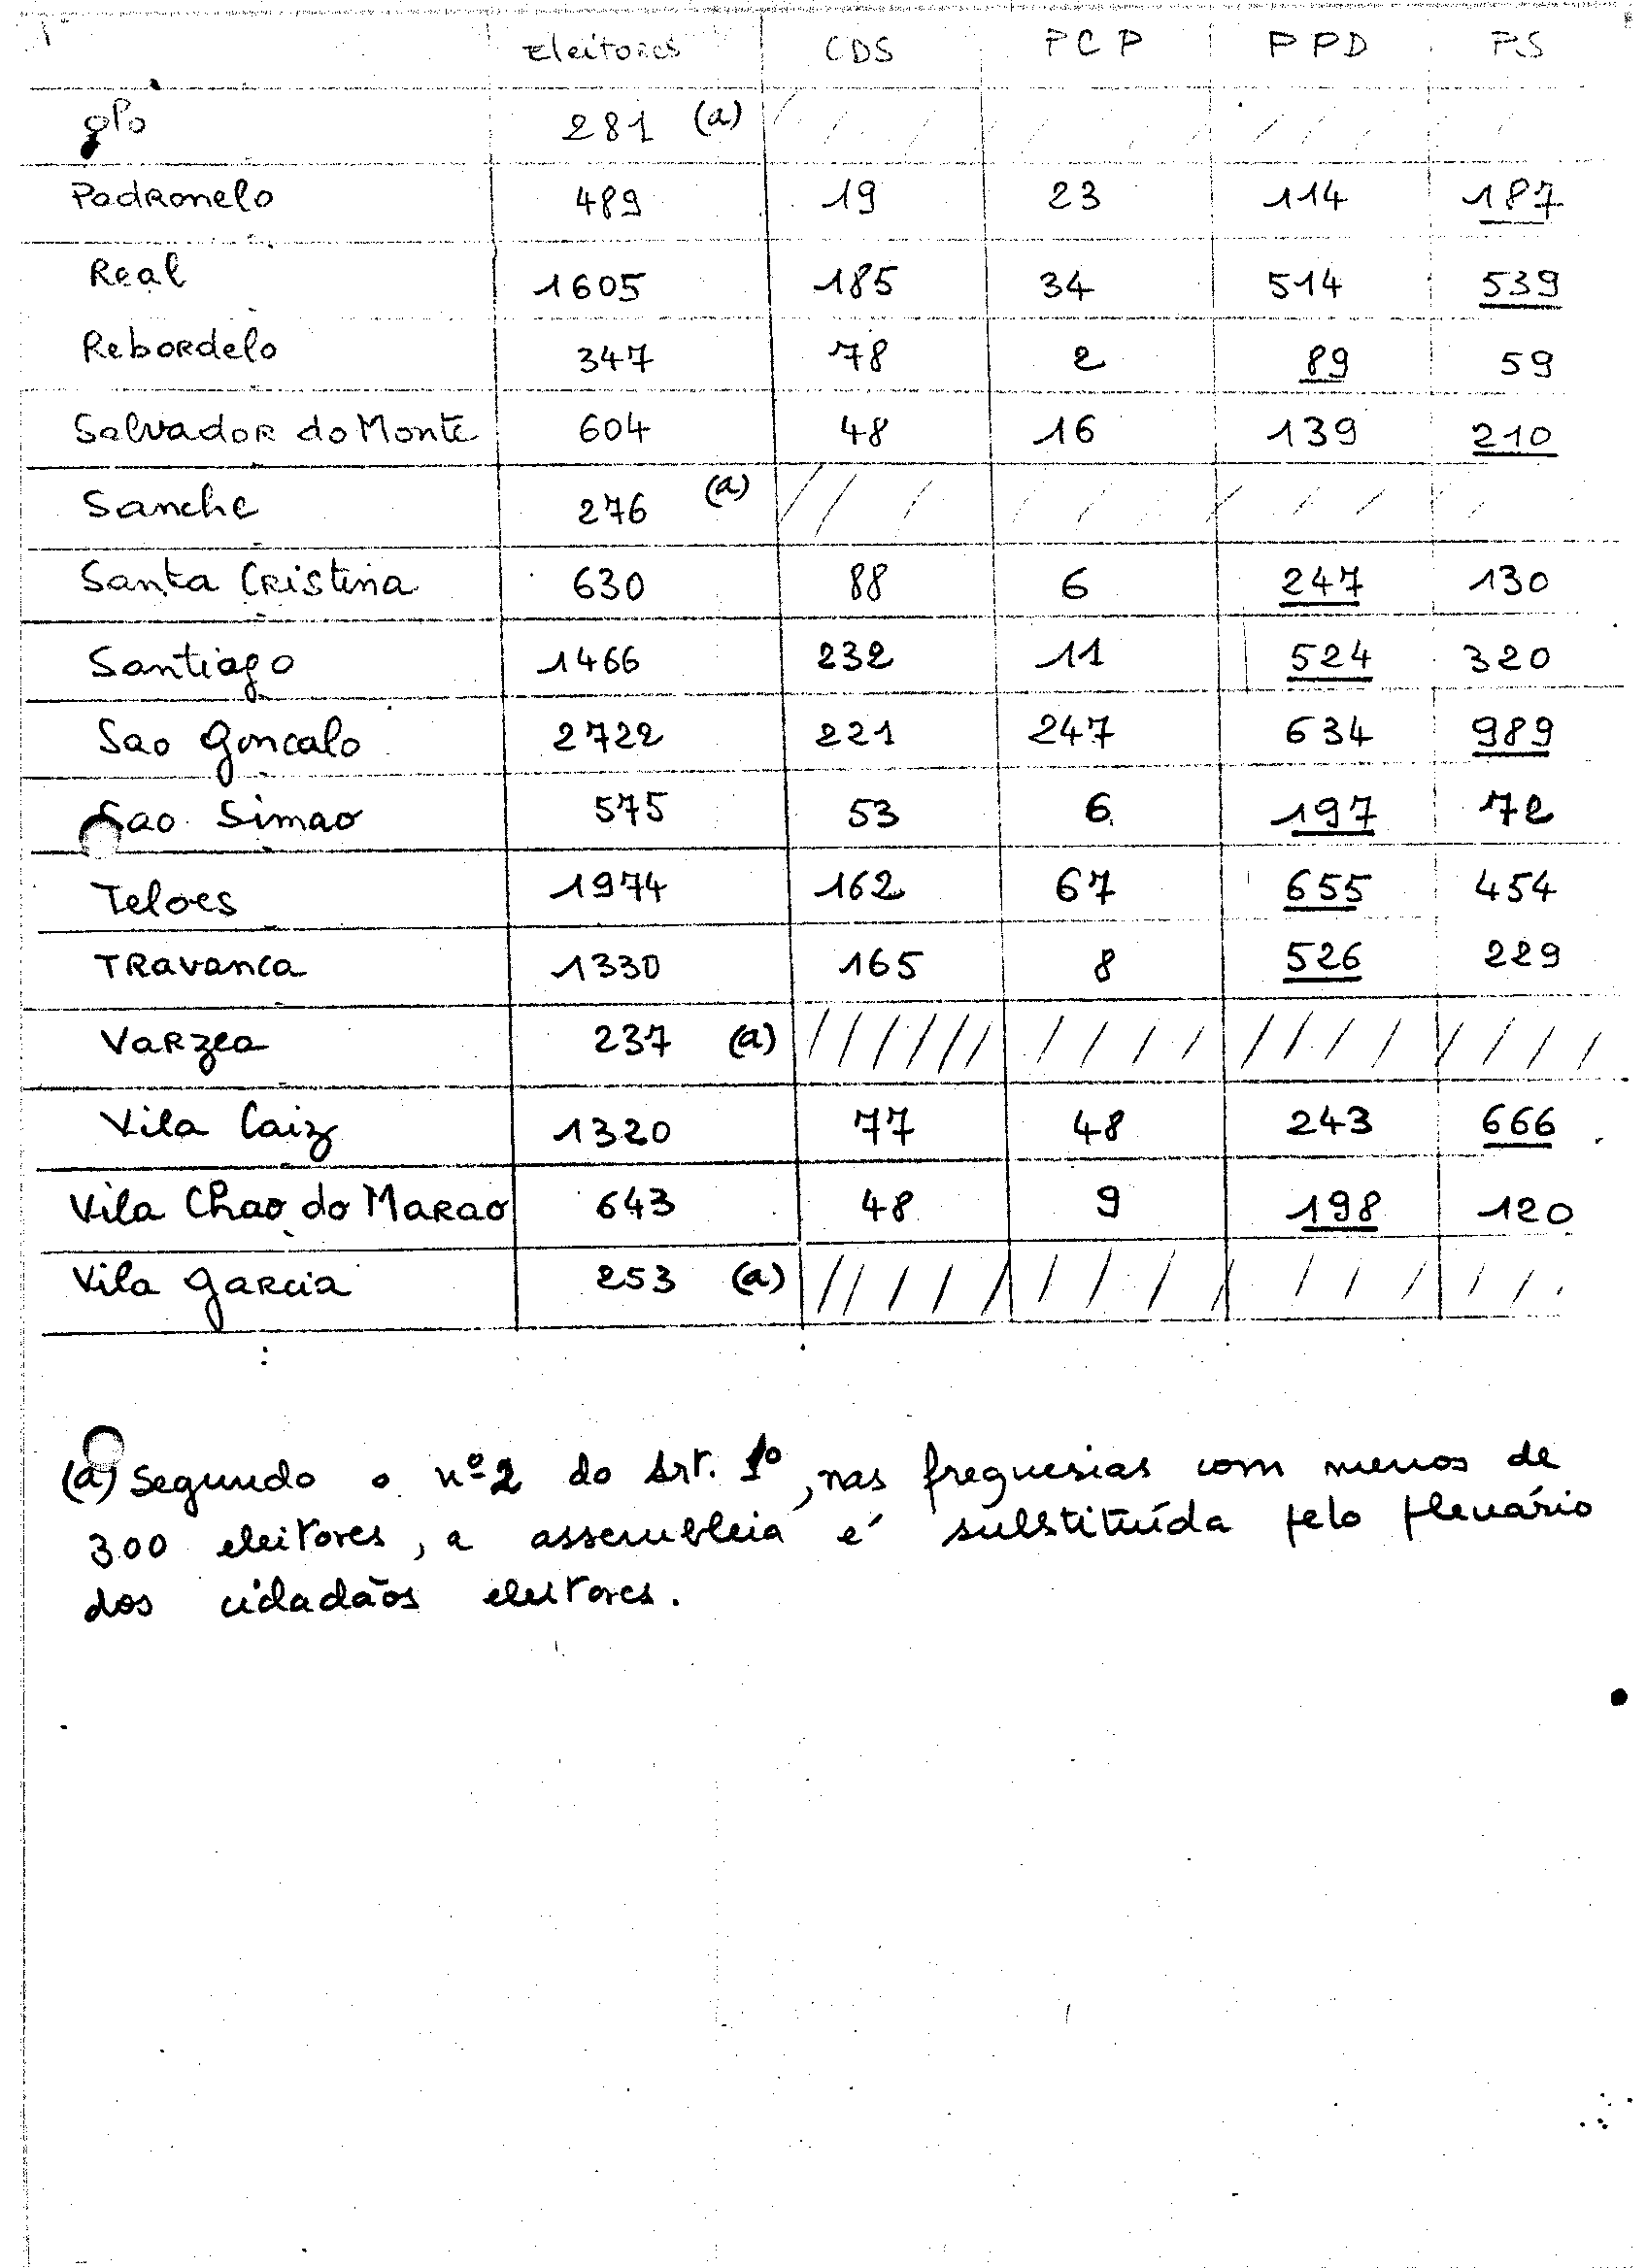 Eleitores CDS PCP PPD PS
281 (a)
Padronelo 489 19 23 114 187
Real 1605 185 34 514 539
Rebordelo 347 78 2 89 59
Salvador do Monte 604 48 16 139 210
Sanche 276 (a)
Santa Cristina 630 88 6 247 130
Santiago 1466 232 11 524 320
Sao Goncalo 2722 221 247 634 989
Sao Simao 575 53 6 197 72
Teloes 1974 162 67 655 454
Travanca 1330 165 8 526 229
Varzea 237 (a)
Vila Caiz 1320 77 48 243 666
Vila Chao do Marao 643 48 9 198 120
Vila Garcia 253 (a)
(a) Segundo o nº 2 do Art. 1º, nas freguesias com menos de
300 eleitores, a assembleia é substituída pelo plenário
dos cidadãos eleitores.